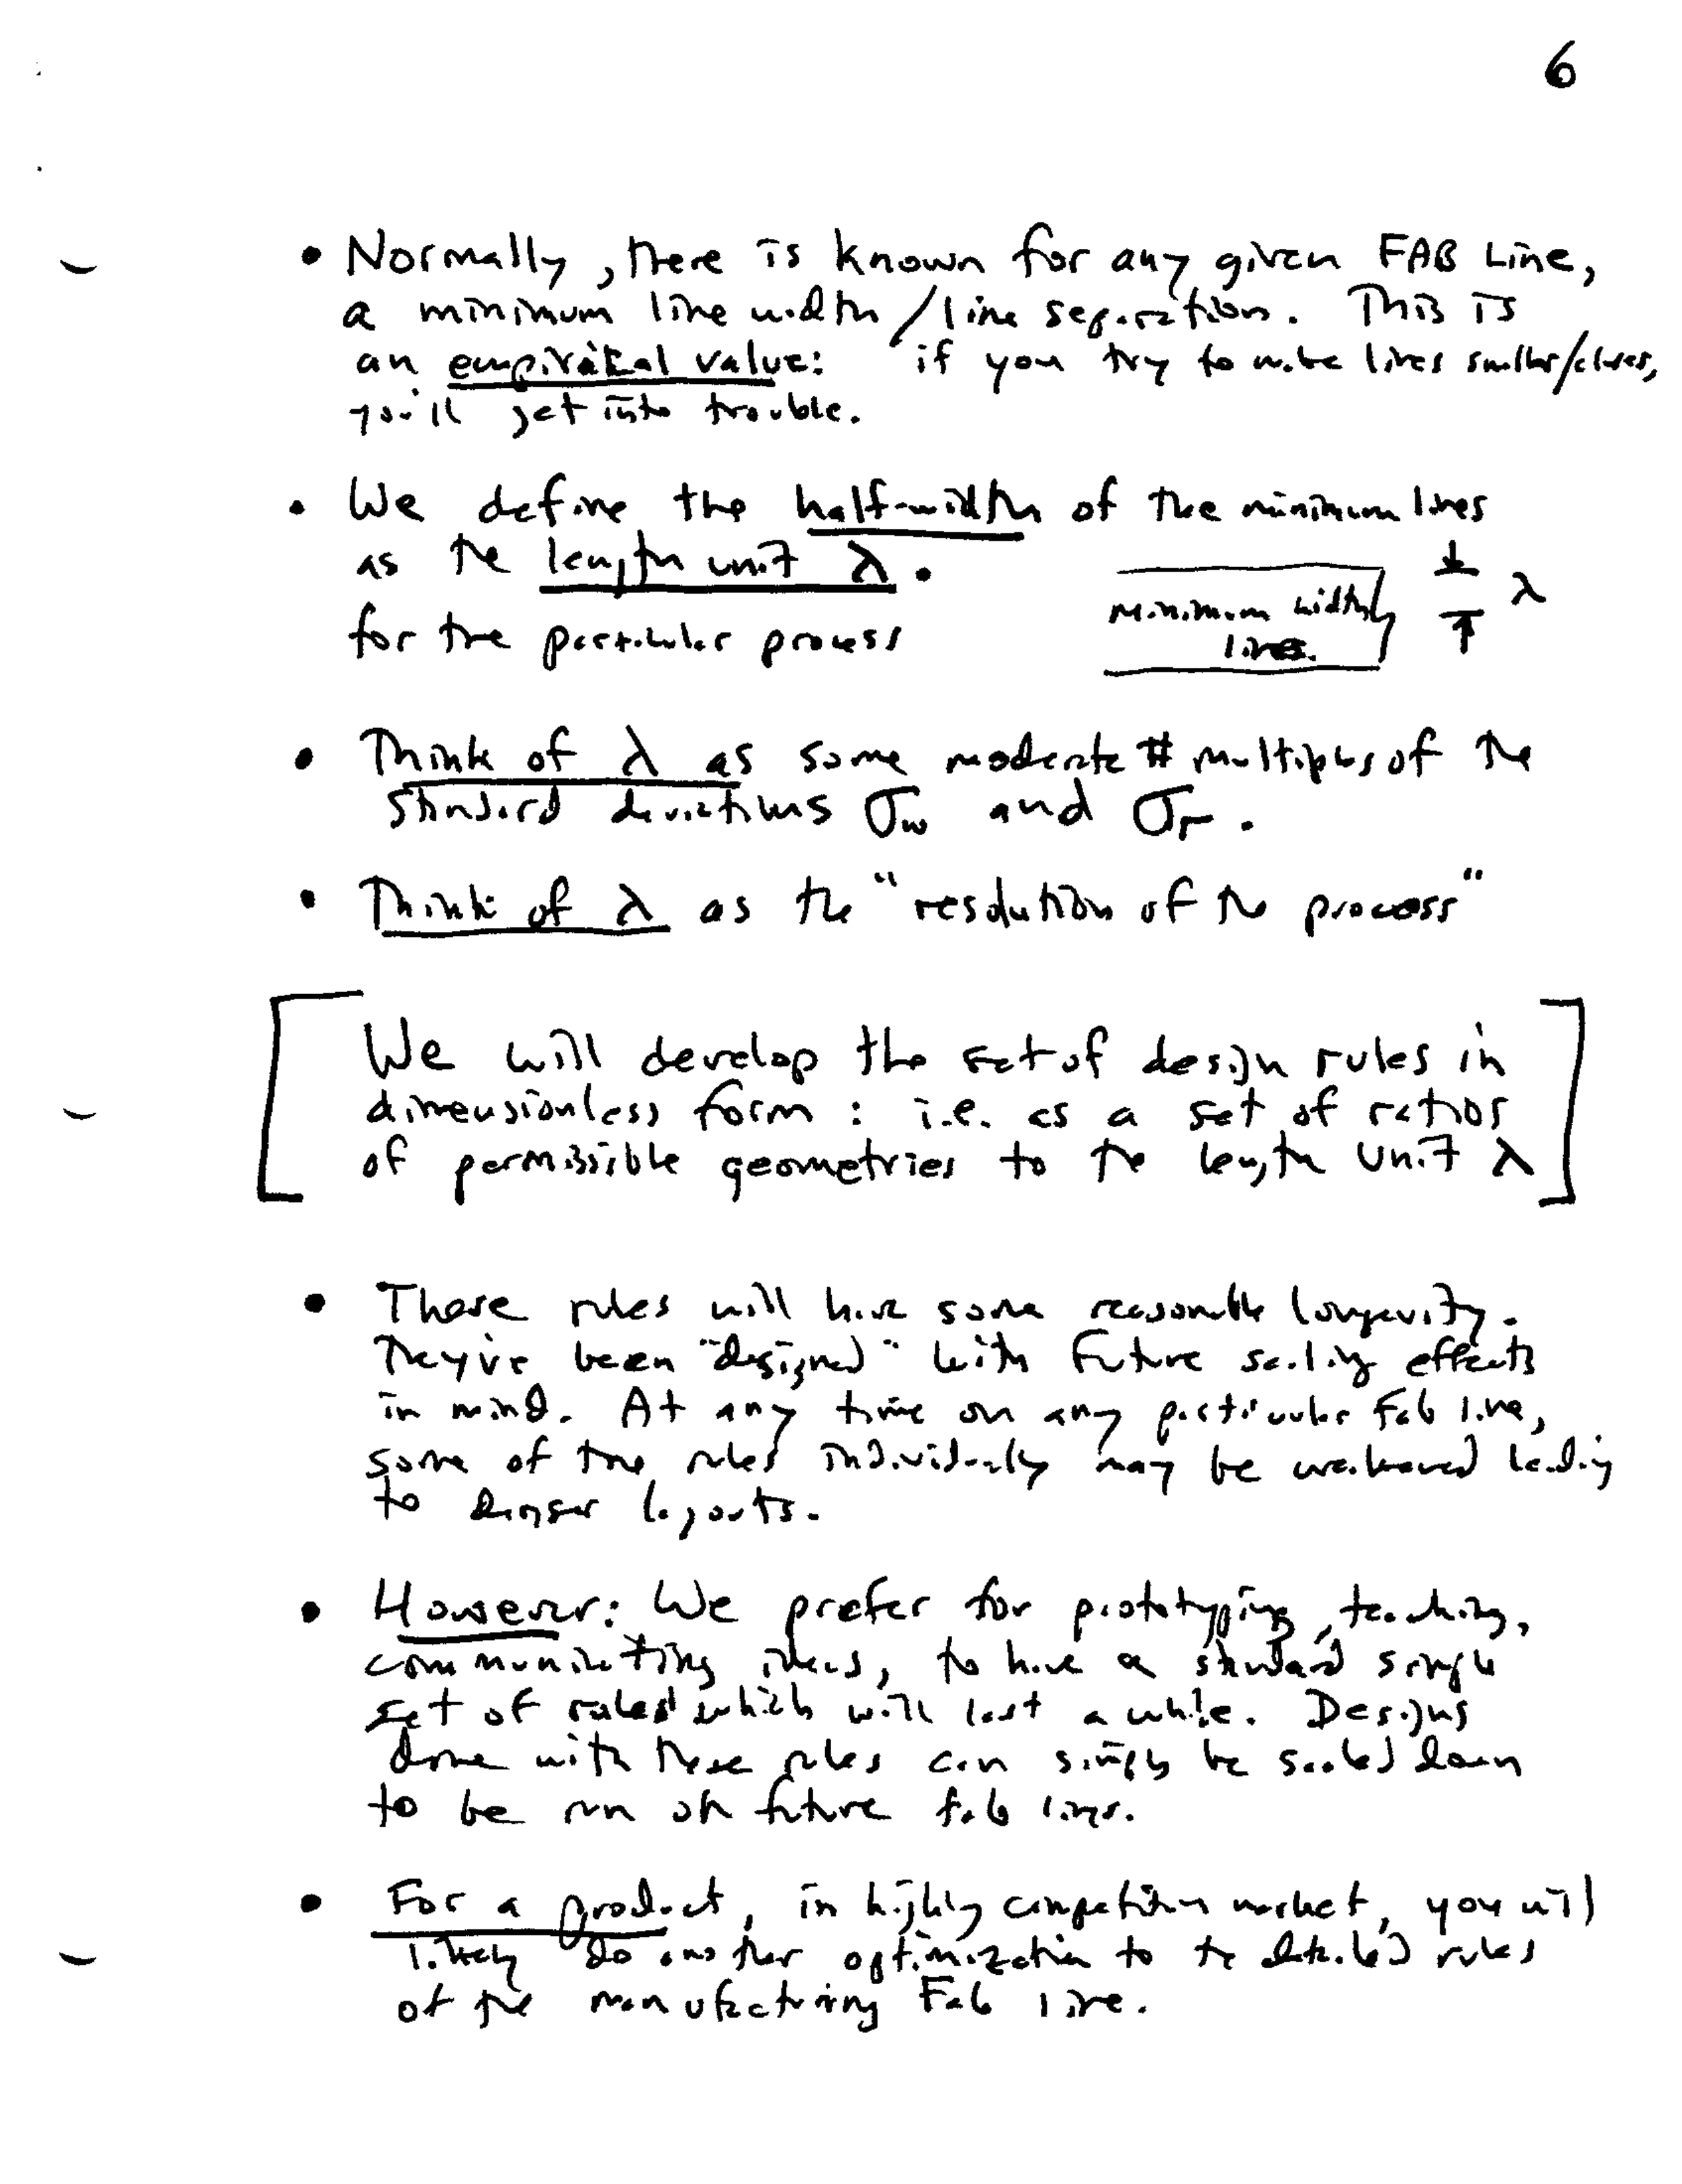 6
• Normally, there is known for any given FAB Line,
a minimum line width/line separation. This is
an empirical value: if you try to make lines smaller/closer,
you'll get into trouble.
• We define the half-width of the minimum lines
as the length unit λ.
for the particular process
minimum width
lines.
λ
• Think of λ as some moderate # multiples of the
standard deviations σw and σr.
• Think of λ as the "resolution of the process"
[We will develop the set of design rules in
dimensionless form : i.e. as a set of ratios
of permissible geometries to the length unit λ]
• These rules will have some reasonable longevity.
They've been "designed" with future scaling effects
in mind. At any time on any particular Fab line,
some of the rules individually may be weakened leading
to denser layouts.
• However: We prefer for prototyping, teaching,
communicating ideas, to have a standard single
set of rules which will last a while. Designs
done with these rules can simply be scaled down
to be run on future fab lines.
• For a product, in highly competitive market, you will
likely do another optimization to the detailed rules
of the manufacturing Fab line.